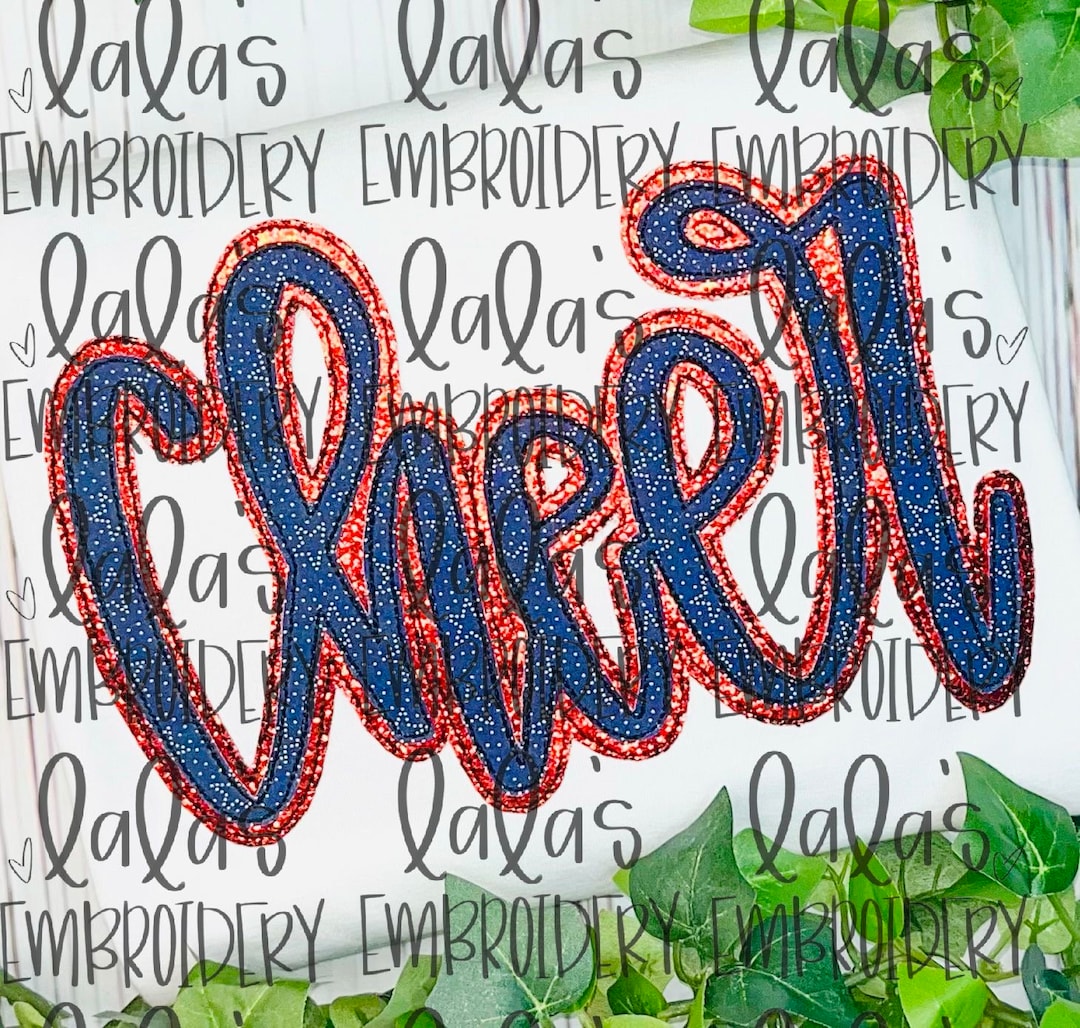 lala's lala's lala's
EMBROIDERY EMBROIDERY EMBROIDERY
lala's lala's lala's
EMBROIDERY EMBROIDERY EMBROIDERY
Cheer
lala's lala's lala's
EMBROIDERY EMBROIDERY EMBROIDERY
lala's lala's lala's
EMBROIDERY EMBROIDERY EMBROIDERY